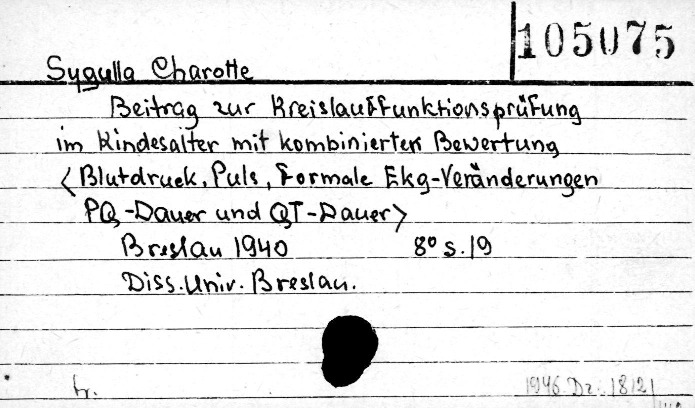 105075
Sygulla Charotte
Beitrag zur Kreislauffunktionsprüfung
im Kindesalter mit kombinierten Bewertung
<Blutdruck, Puls, Formale Ekg-Veränderungen
PQ-Dauer und QT-Dauer>
Breslau 1940 8° S. 19
Diss. Univ. Breslau.
tr. 1946 Dz. 1812